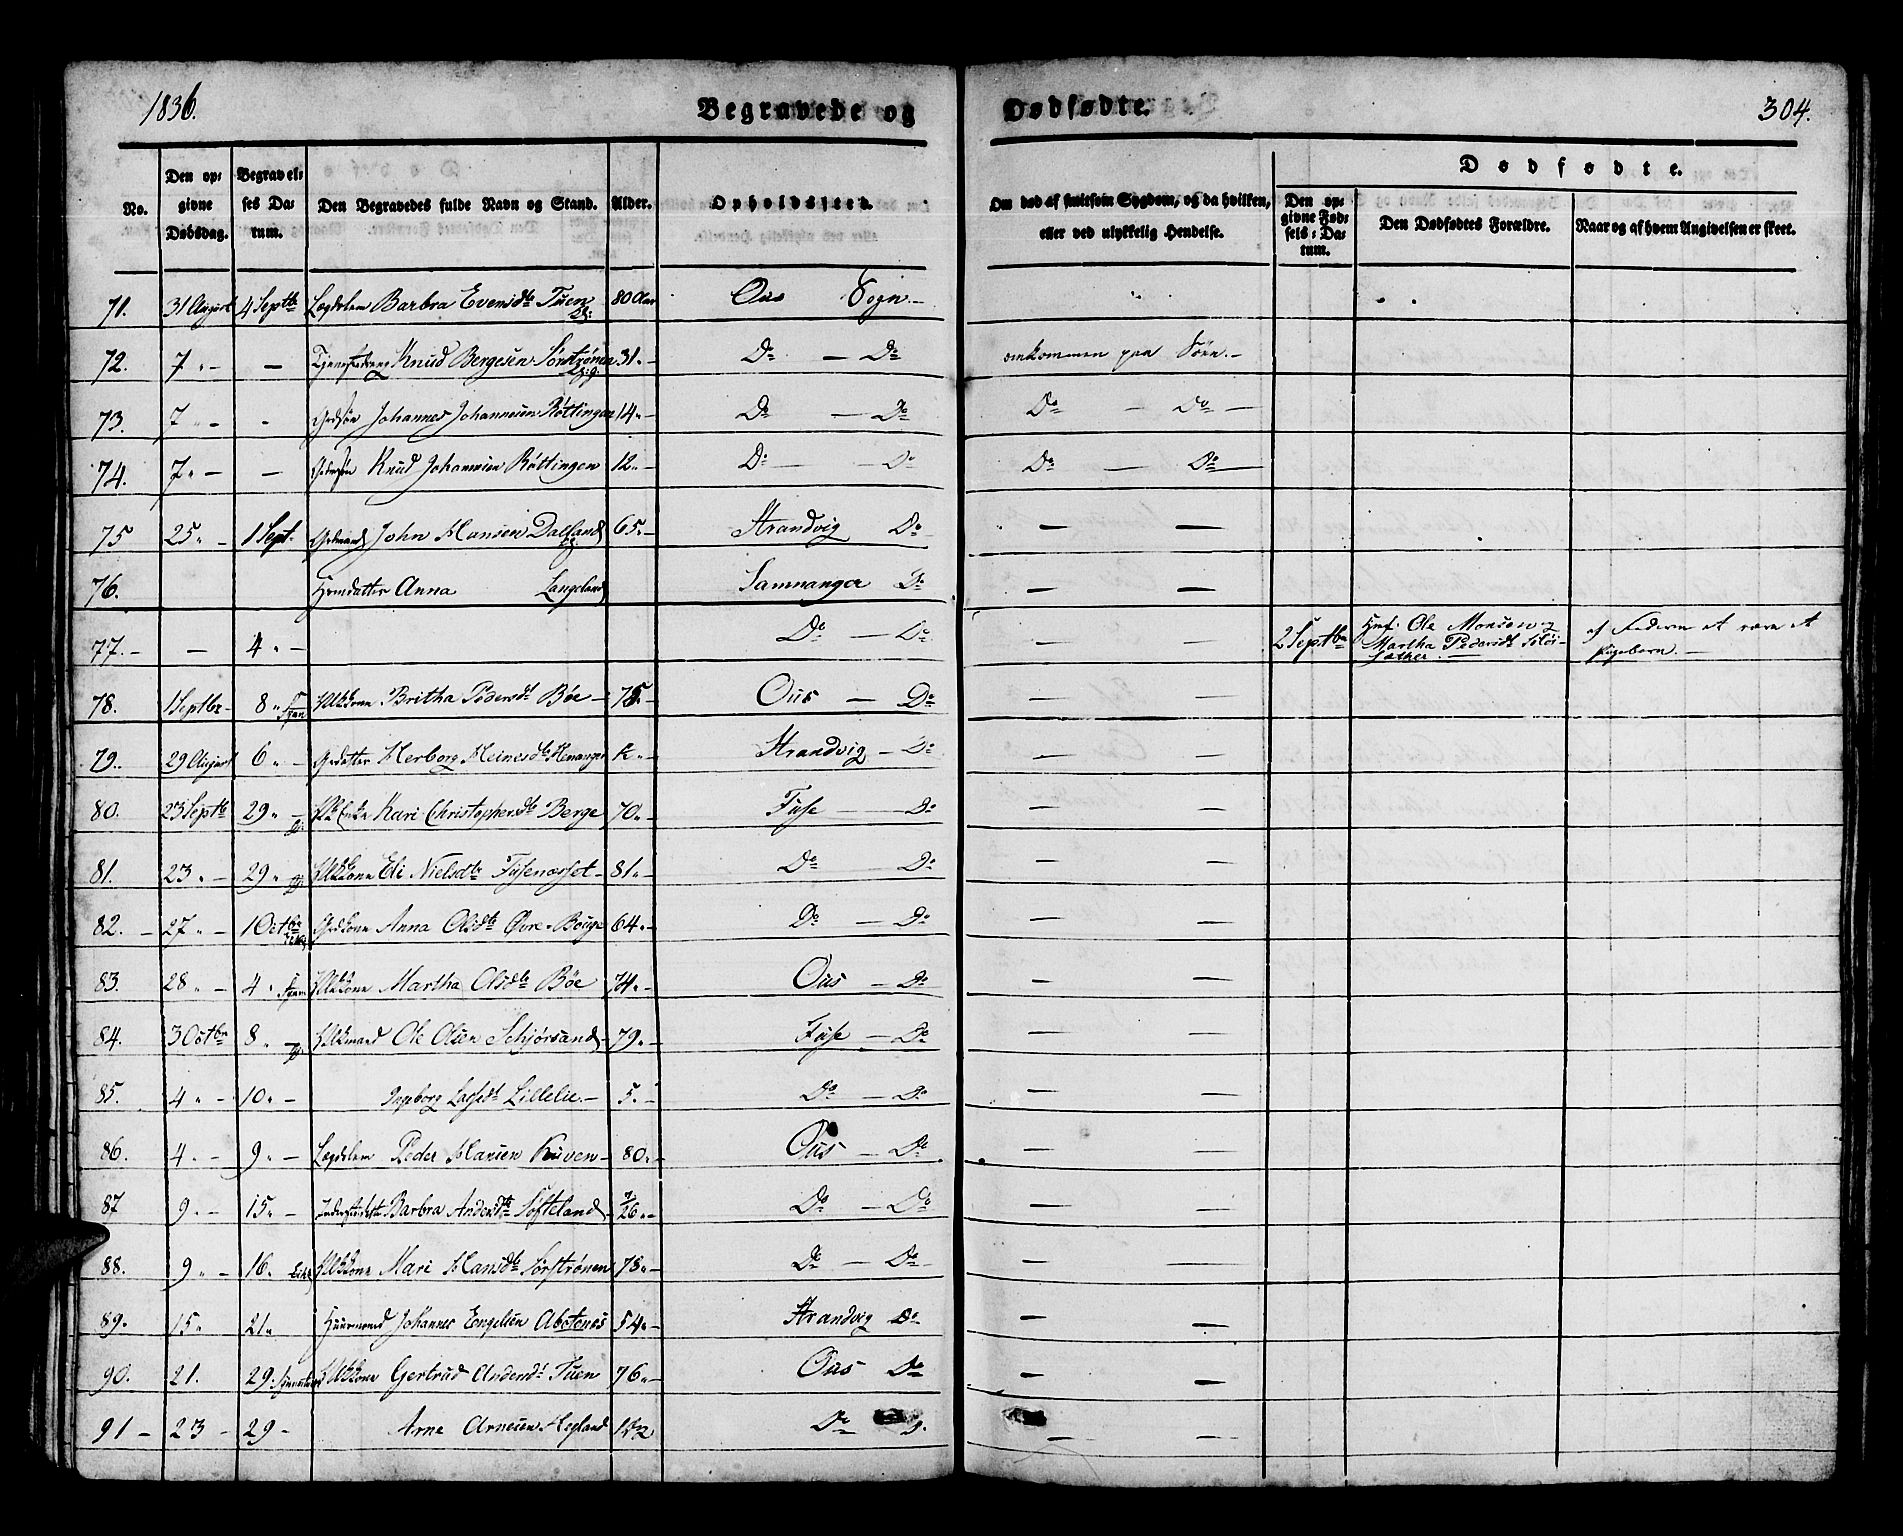 1836.
Begravede og
Dødfødte.
304.
No.
Den opgivne Dødsdag.
Begravelses Datum.
Den Begravedes fulde Navn og Stand.
Alder.
Opholdssted.
Om død af smitsom Sygdom, og da hvilken, eller ved ulykkelig Hendelse.
Dødfødte.
Den opgivne Fødsels-Datum.
Den Dødfødtes Forældre.
Naar og af hvem Angivelsen er skeet.
71. 31 August 4 Septbr Lægdslem Barbra Evensdtr Tuen 80 Aar Ous Sogn.
72. 7 " - - Knud Bergesen Sørstrønen 31. - Do - Do omkommen paa Søen. -
73. 7 " - - Grdsøn Johannes Johannesen Røttingen 14. - Do - Do Do - Do -
74. 7 " - - Knud Johannesen Røttingen 12. - Do - Do Do - Do
75 25 " - 1 Sept. Grdmand John Hansen Dalland 65. - Strandvig Do - -
76. Huusdatter Anna Langeland Samnanger Do - -
77. - - 4 " - Do - Do - - 2 Septbr Ole Monsen Martha Pedersdt af Faderen at være et Pigebarn. -
78. 1 Septbr - 8 " - Britha Pedersdt Bøe - 75. Ous - Do - -
79. 29 August 6 " - Grdatter Herborg Heinesdtr Henanger Strandvig - Do - -
80. 23 Septbr 29 " - Enke Kari Christophersdtr Berge 70. Fuse - Do - -
81. 23 " - 29 " - Eli Nielsdtr Fusenæsset - 81. - Do - Do - -
82. - 27 " - 1 Octbr Grdkone Anna Olsdtr Øvre-Bouge 64. - Do - Do - -
83. 28 " - 4 " Martha Olsdtr Bøe 74. - Ous - Do - -
84. 3 Octbr 8 " - Ole Olsen Schjørsand - 79. - Fuse - Do - -
85. 4 " - 10 " - Ingeborg Lassedt Lillelie. - 5. - Do - Do - -
86. 4 " - 9 " - Lægdslem Peder Hansen Kuven - 80. - Ous - Do - -
87 9 " - 15 " - Barbra Andersdtr Søfteland - 7/26. - Do - Do - -
88. 9 " - 16 " Mari Hansdtr Sørstrønen 78. - Do - Do - -
89. 15 " 21 " Huusmand Johannes Engelsen 54. - Strandvig Do - -
90. 21. 29. Gertrud Andersdt Tuen 76. - Ous Do - -
91 - 23 - 29 - Arne Arnesen Hegland Do - -